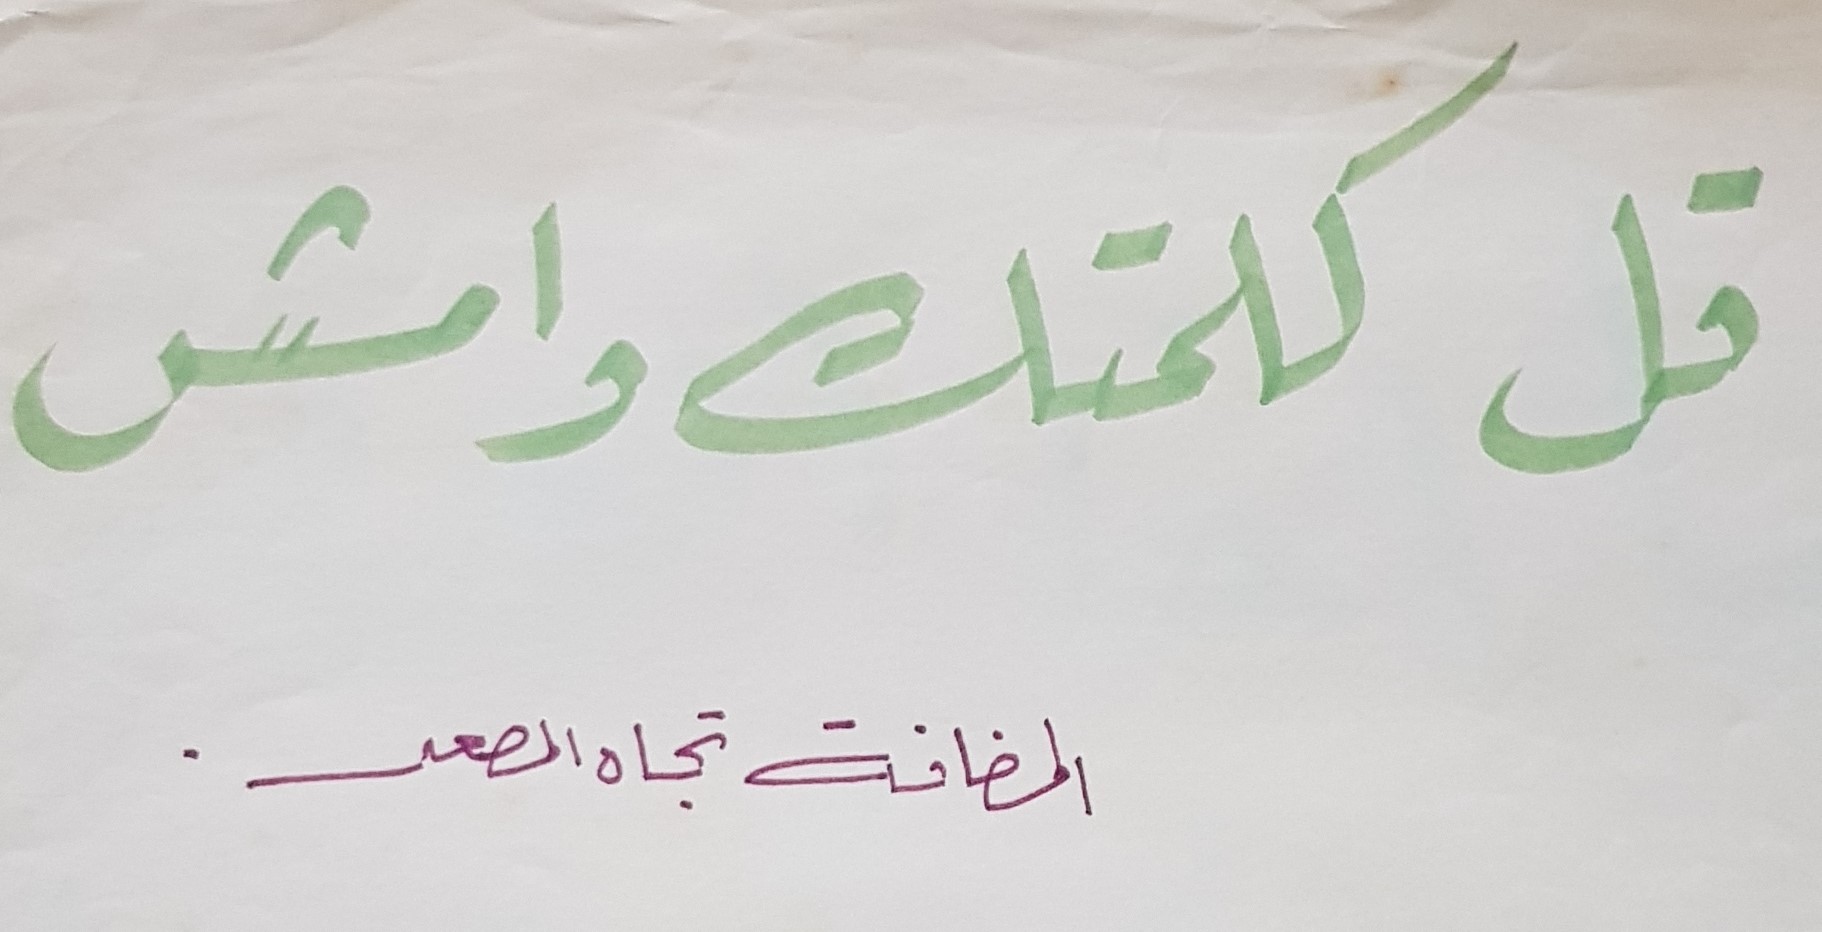 قل كلمتك وامش
المضافة تجاه المصعد .